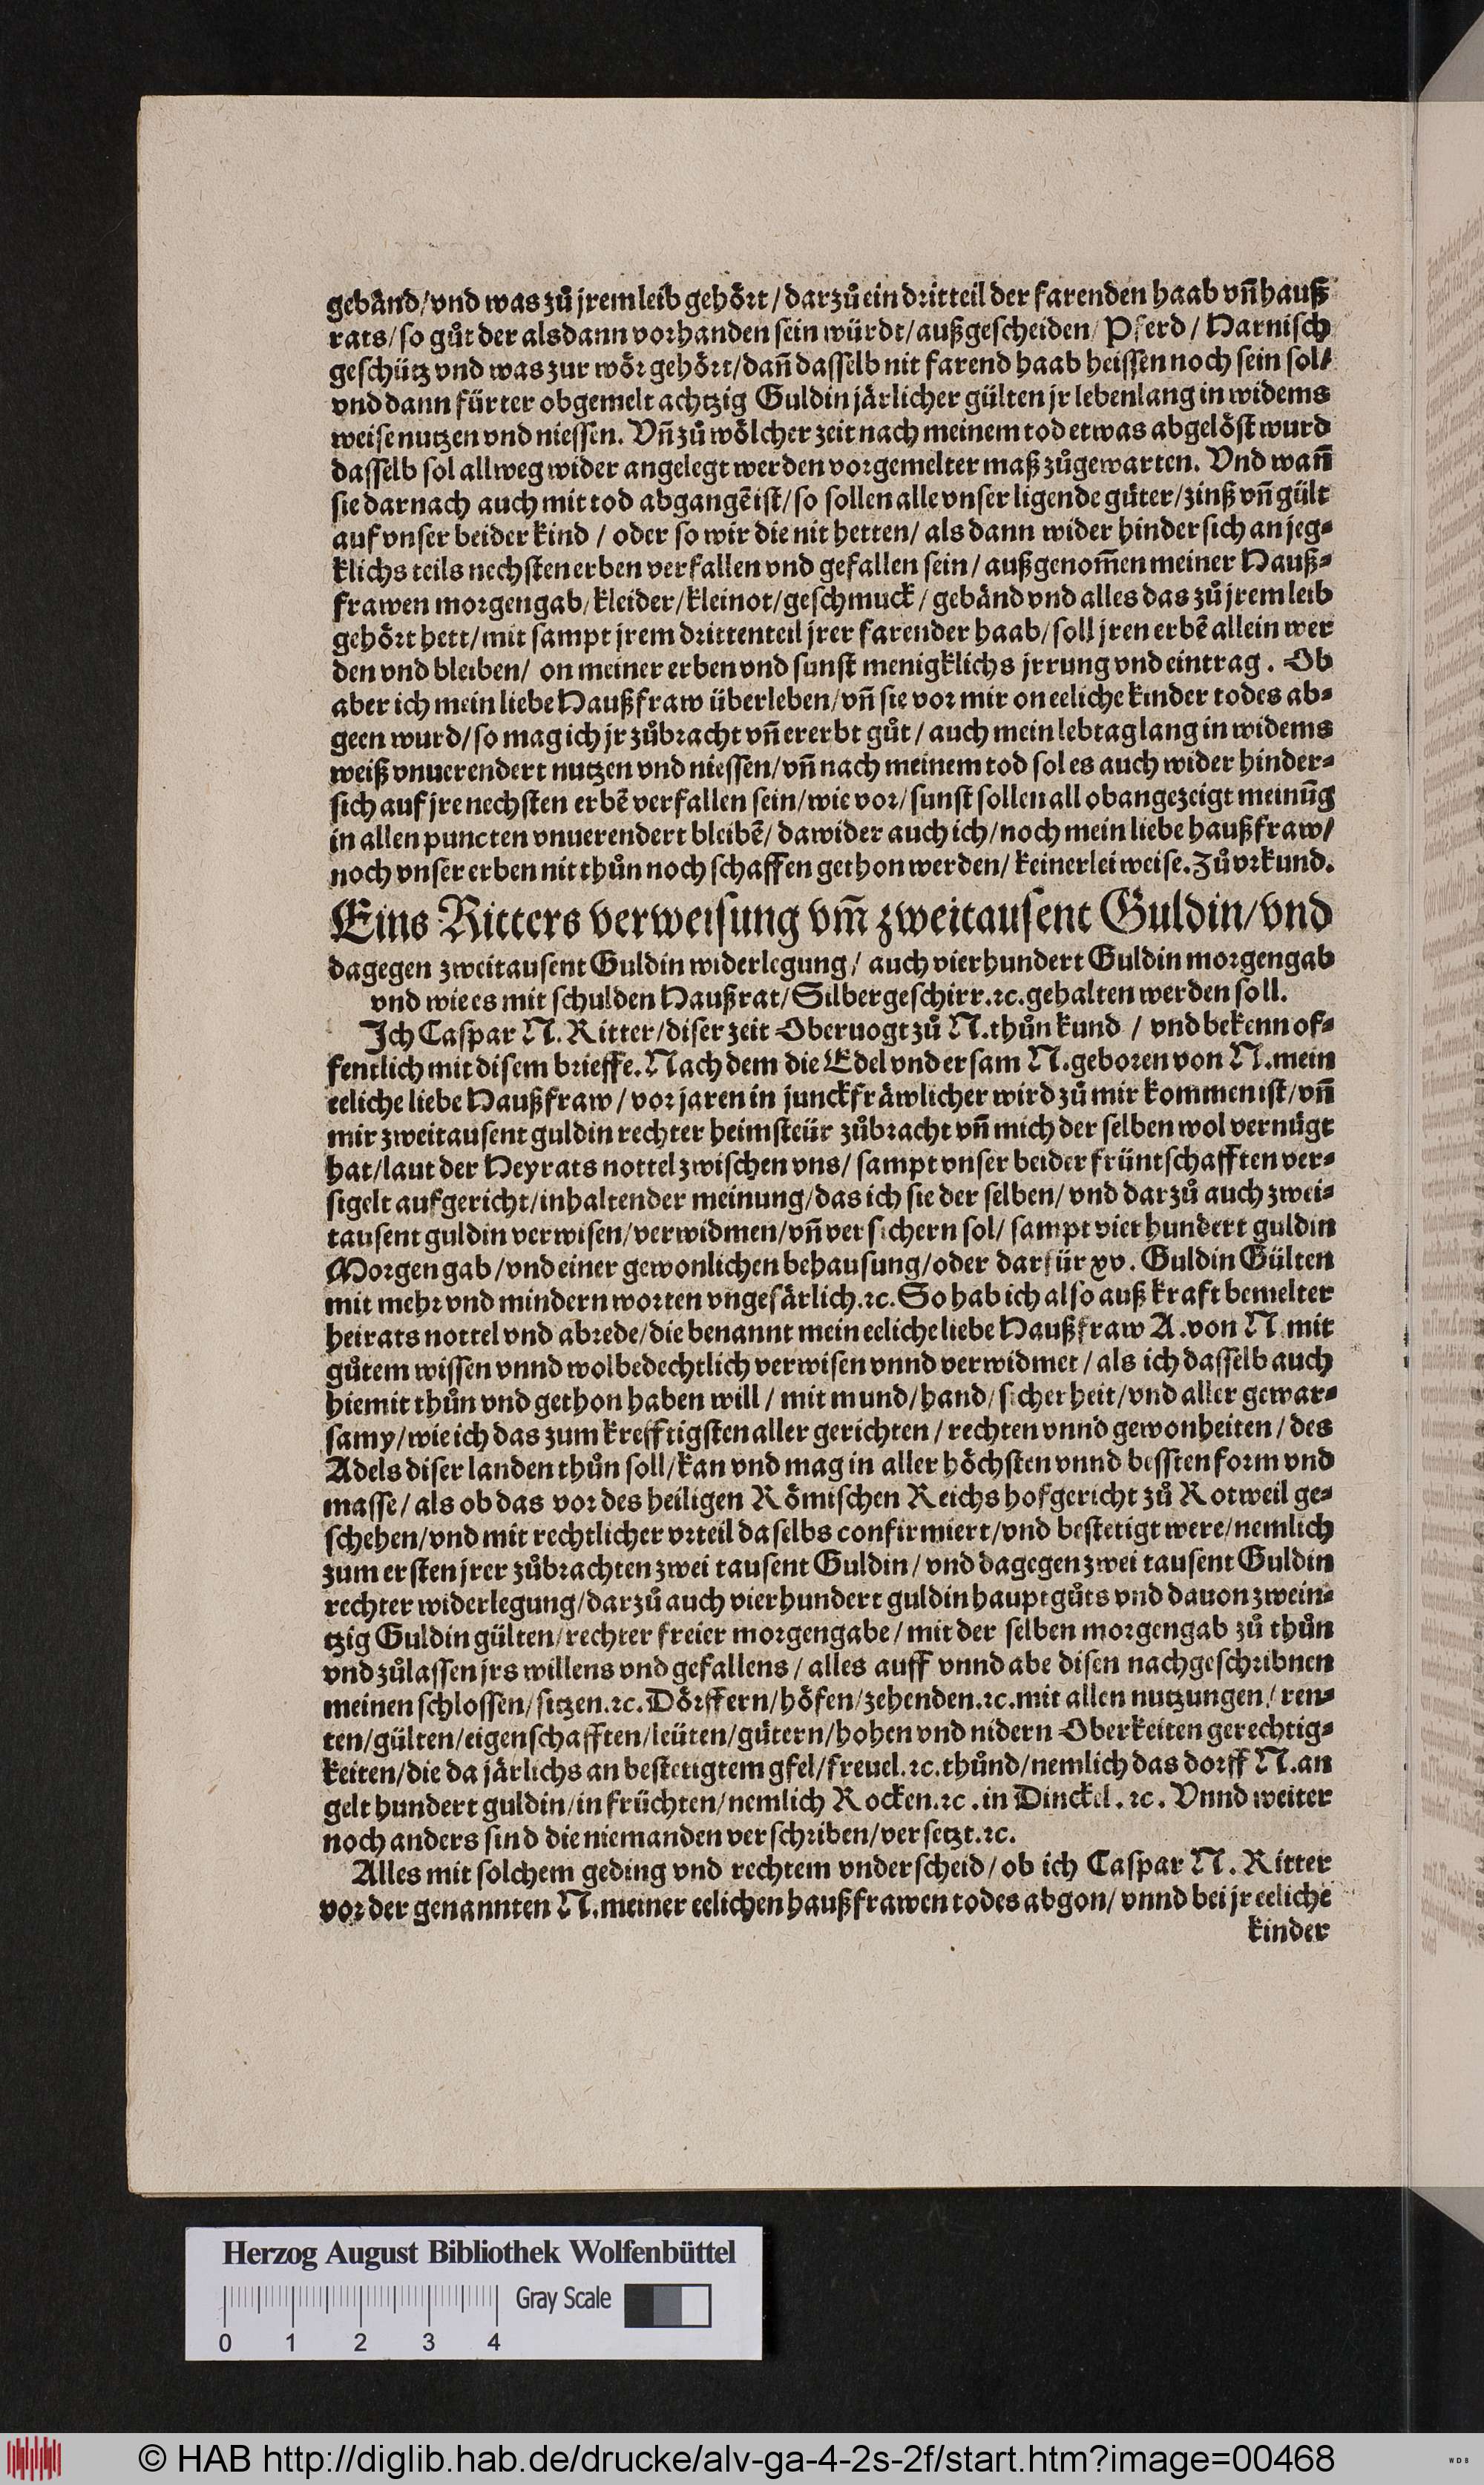 gebånd/vnd was zů jrem leib gehőrt/darzů ein dritteil der farenden haab vñ hauß
rats/so gůt der alsdann vorhanden sein würdt/außgescheiden/Pferd/Harnisch
geschütz vnd was zur wőr gehőrt/dañ dasselb nit farend haab heissen noch sein sol/
vnd dann fürter obgemelt achtzig Guldin jårlicher gülten jr lebenlang in widems
weise nutzen vnd niessen. Vñ zů wőlcher zeit nach meinem tod etwas abgelőst wurd
dasselb sol allweg wider angelegt werden vorgemelter maß zůgewarten. Vnd wañ
sie darnach auch mit tod abgangẽ ist/so sollen alle vnser ligende gůter/zinß vñ gült
auf vnser beider kind / oder so wir die nit hetten/ als dann wider hinder sich an jeg⸗
klichs teils nechsten erben verfallen vnd gefallen sein/ außgenom̃en meiner Hauß⸗
frawen morgengab/kleider/kleinot/geschmuck/gebånd vnd alles das zů jrem leib
gehőrt hett/mit sampt jrem drittenteil jrer farender haab/soll jren erbẽ allein wer
den vnd bleiben/ on meiner erben vnd sunst menigklichs jrrung vnd eintrag. Ob
aber ich mein liebe Haußfraw überleben/vñ sie vor mir on eeliche kinder todes ab⸗
geen wurd/so mag ich jr zůbracht vñ ererbt gůt/auch mein lebtag lang in widems
weiß vnuerendert nutzen vnd niessen/vñ nach meinem tod sol es auch wider hinder⸗
sich auf jre nechsten erbẽ verfallen sein/wie vor/sunst sollen all obangezeigt meinũg
in allen puncten vnuerendert bleibẽ/ dawider auch ich/noch mein liebe haußfraw/
noch vnser erben nit thůn noch schaffen gethon werden/keinerlei weise. Zů vrkund.
Eins Ritters verweisung vm̃ zweitausent Guldin/vnd
dagegen zweitausent Guldin widerlegung/ auch vierhundert Guldin morgengab
vnd wie es mit schulden Haußrat/Silbergeschirr.ꝛc.gehalten werden soll.
Ich Caspar N. Ritter/diser zeit Oberuogt zů N.thůn kund / vnd bekenn of⸗
fentlich mit disem brieffe. Nach dem die Edel vnd ersam N.geboren von N.mein
eeliche liebe Haußfraw/vor jaren in junckfråwlicher wird zů mir kommen ist/vñ
mir zweitausent guldin rechter heimsteür zůbracht vñ mich der selben wol vernůgt
hat/laut der Heyrats nottel zwischen vns/ sampt vnser beider früntschafften ver⸗
sigelt aufgericht/inhaltender meinung/das ich sie der selben/ vnd darzů auch zwei⸗
tausent guldin verwisen/verwidmen/vñ versichern sol/ sampt vierhundert guldin
Morgengab/vnd einer gewonlichen behausung/oder darfür xv. Guldin Gülten
mit mehr vnd mindern worten vngefårlich.ꝛc. So hab ich also auß kraft bemelter
heirats nottel vnd abrede/die benannt mein eeliche liebe Haußfraw A.von N mit
gůtem wissen vnnd wolbedechtlich verwisen vnnd verwidmet/als ich dasselb auch
hiemit thůn vnd gethon haben will / mit mund/hand/sicherheit/vnd aller gewar⸗
samy/wie ich das zum krefftigsten aller gerichten / rechten vnnd gewonheiten / des
Adels diser landen thůn soll/kan vnd mag in aller hőchsten vnnd bessten form vnd
masse/als ob das vor des heiligen Rőmischen Reichs hofgericht zů Rotweil ge⸗
schehen/vnd mit rechtlicher vrteil daselbs confirmiert/vnd bestetigt were/nemlich
zum ersten jrer zůbrachten zwei tausent Guldin/ vnd dagegen zwei tausent Guldin
rechter widerlegung/darzů auch vierhundert guldin hauptgůts vnd dauon zwein⸗
tzig Guldin gülten/rechter freier morgengabe/mit der selben morgengab zů thůn
vnd zůlassen jrs willens vnd gefallens/alles auff vnnd abe disen nachgeschribnen
meinen schlossen/sitzen.ꝛc. Dőrffern/hőfen/zehenden.ꝛc.mit allen nutzungen/ ren⸗
ten/gülten/eigenschafften/leüten/gůtern/hohen vnd nidern Oberkeiten gerechtig⸗
keiten/die da jårlichs an bestetigtem gfel/freuel.ꝛc.thůnd/nemlich das dorff N.an
gelt hundert guldin/in früchten/nemlich Rocken.ꝛc.in Dinckel.ꝛc. Vnnd weiter
noch anders sind die niemanden verschriben/versetzt.ꝛc.
Alles mit solchem geding vnd rechtem vnderscheid/ob ich Caspar N. Ritter
vor der genannten N.meiner eelichen haußfrawen todes abgon/ vnnd bei jr eeliche
kinder
Herzog August Bibliothek Wolfenbüttel
Gray Scale
0 1 2 3 4
© HAB http://diglib.hab.de/drucke/alv-ga-4-2s-2f/start.htm?image=00468
WDB